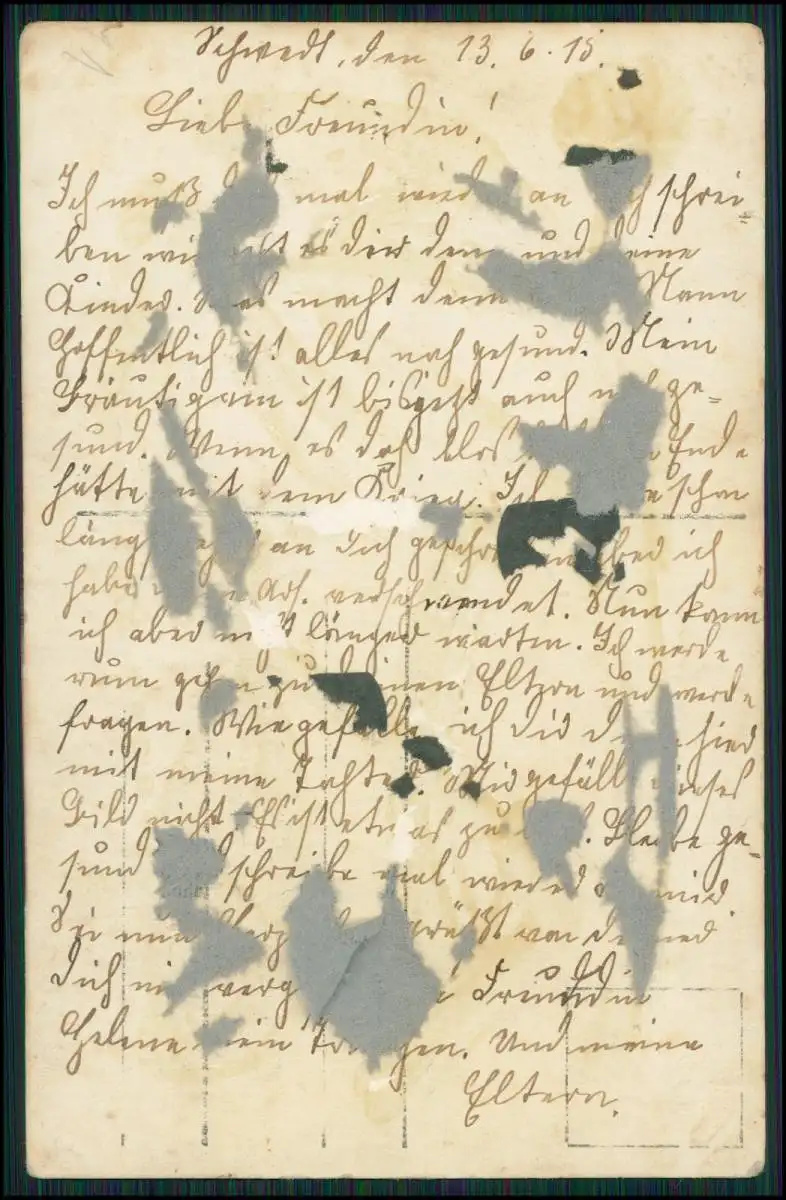 Schwedt, den 13. 6. 15.
Liebe Freundin!
Ich muß mal wieder an schrei-
ben wie es dir denn und deine
Kinder. Was macht denn Mann
Hoffentlich ist alles noch gesund. Mein
Bräutigam ist bis jetzt auch noch ge-
sund. Wenn es doch blos Ende
hätte mit dem Krieg. Ich schon
längst an Dich geschrieben aber ich
habe Adr. verschwendet. Nun kann
ich aber nicht länger warten. Ich werde
rum gehen zu deinen Eltern und werde
fragen. Wie gefalle ich dir hier
mit meine Tochter. Mir gefällt dieses
Bild nicht. Es ist etwas zu. Bleibe ge-
sund schreibe mal wieder mir.
Sei nun gegrüßt von deiner
Dich nie Freundin
Helene mein. Und meine
Eltern.